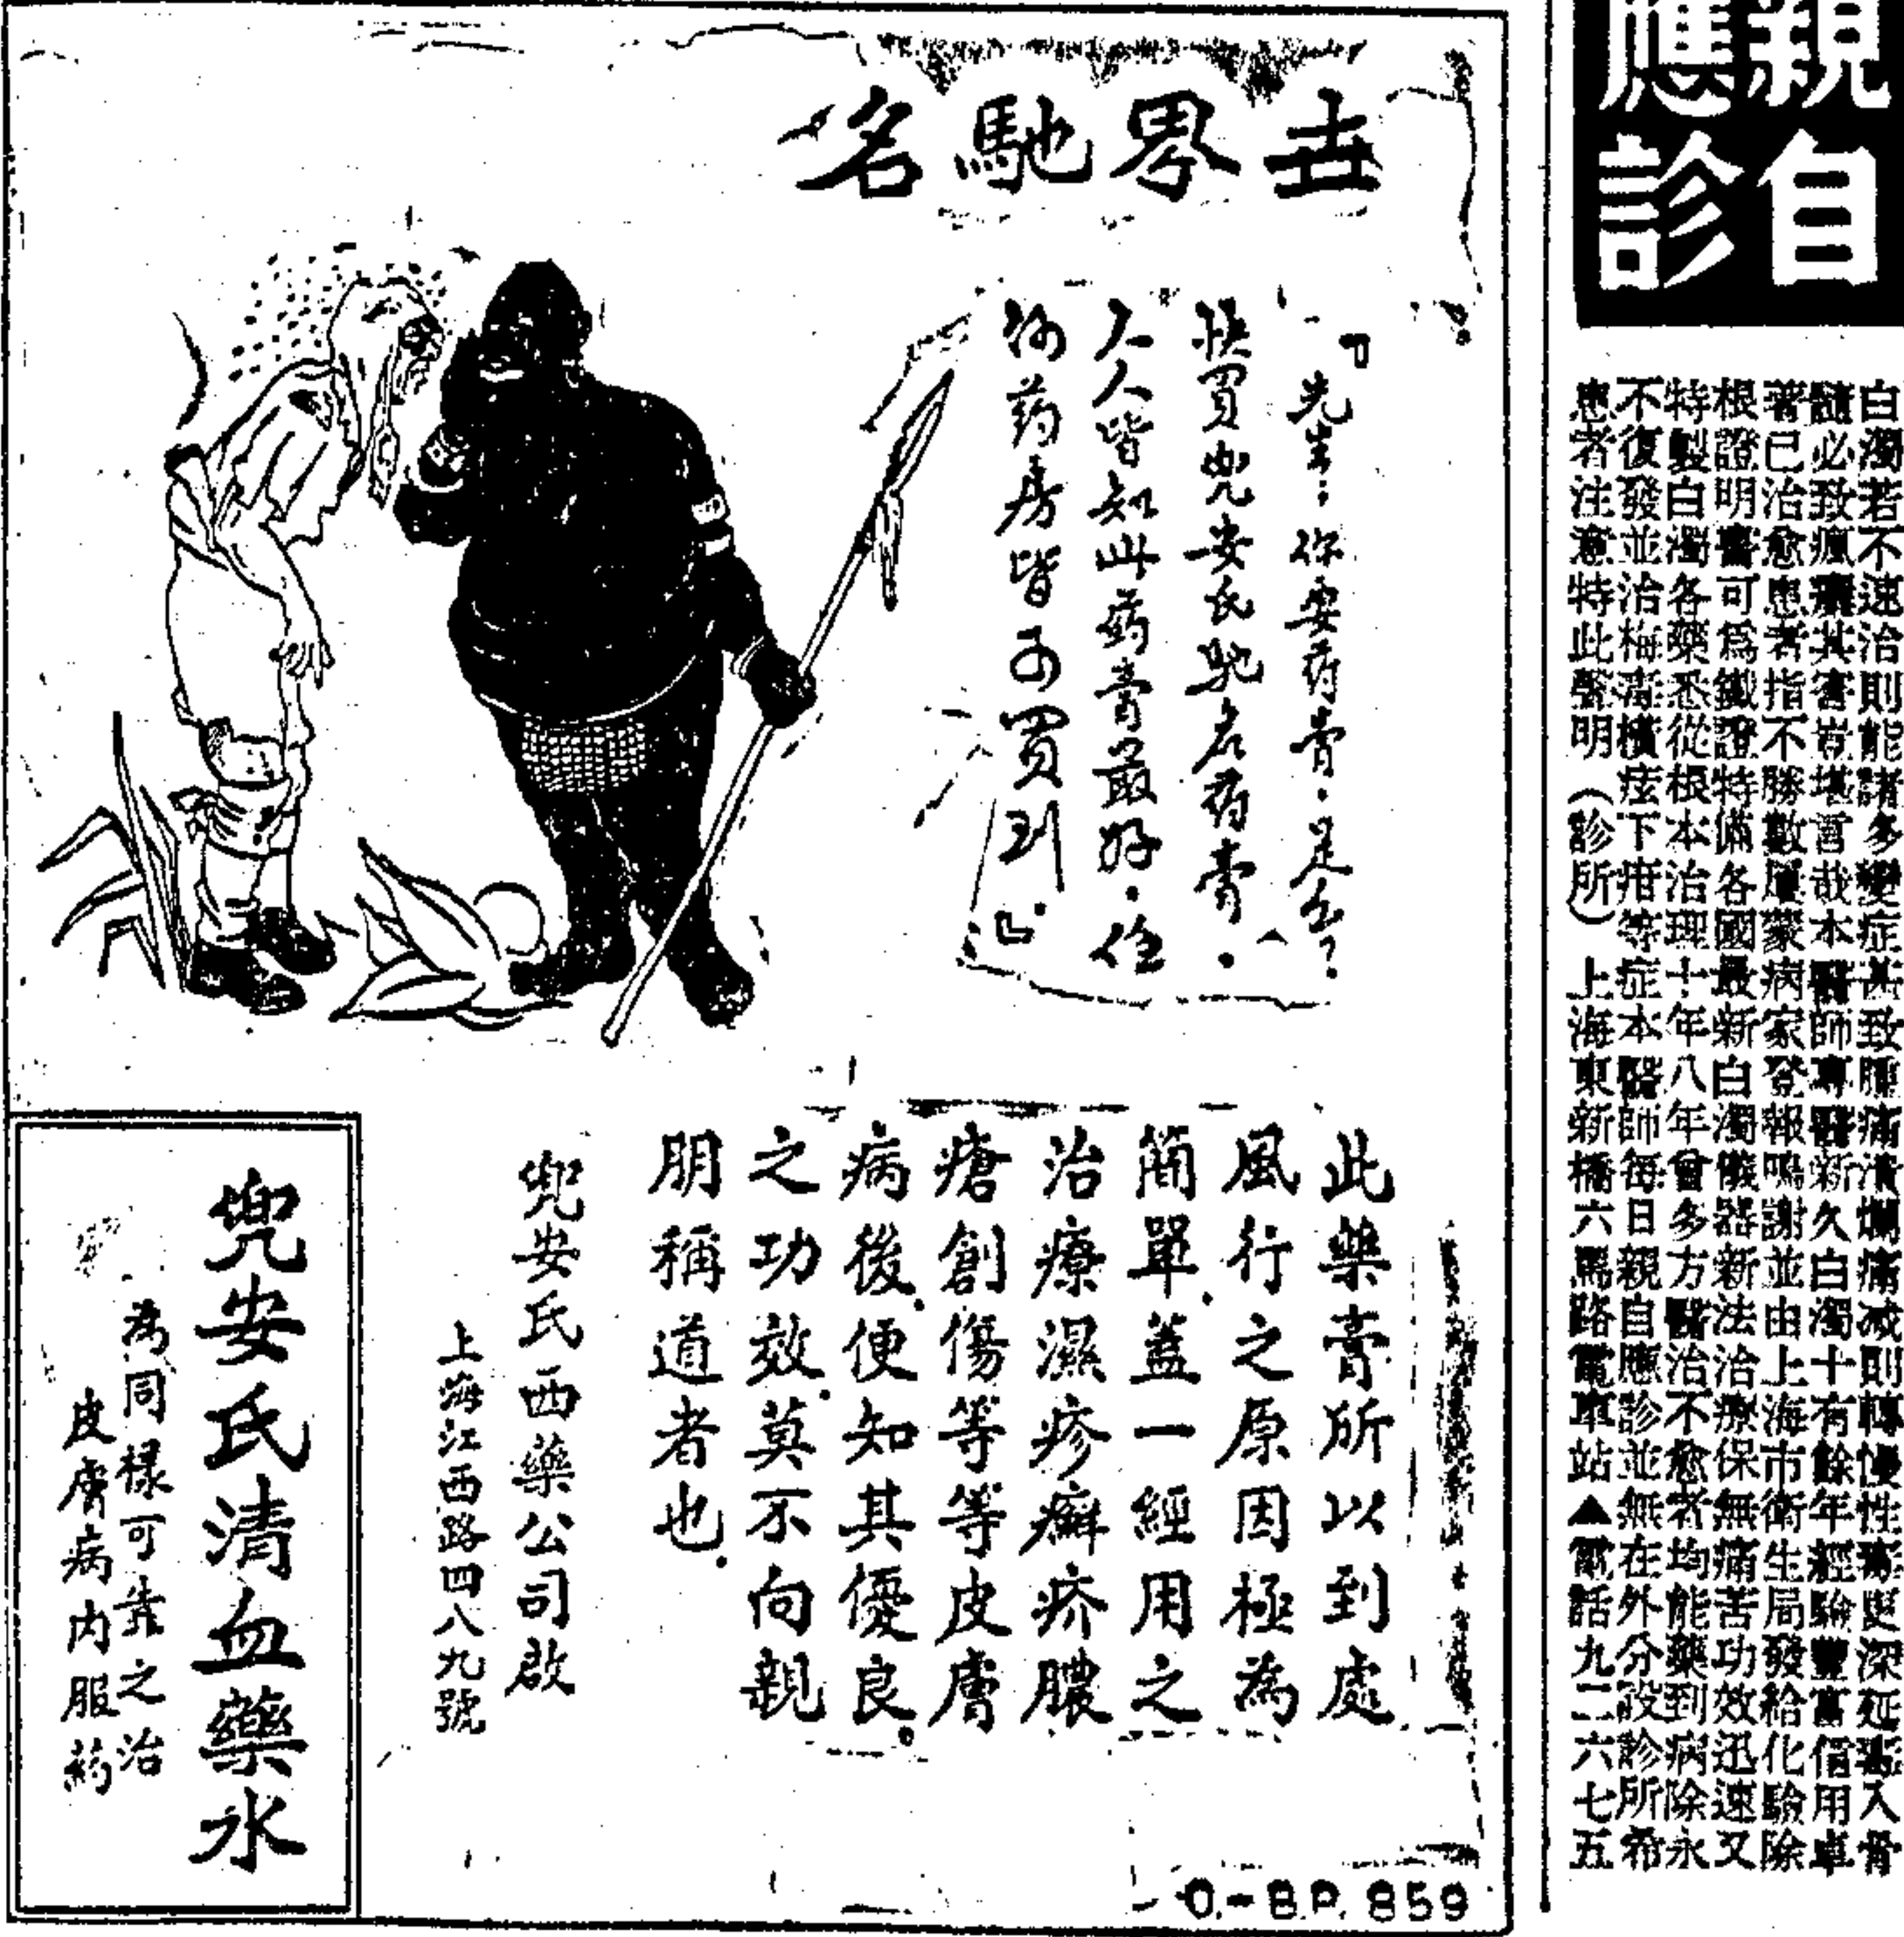 世界馳名
『先生：你要药膏．是么？
快買兜安氏馳名药膏．
人人皆知此药膏最好．任
何药房皆可買到．』
此藥膏所以到處
風行之原因極為
簡單．蓋一經用之
治療濕疹癬疥膿
瘡創傷等等皮膚
病後．便知其優良．
之功效．莫不向親
朋稱道者也．
兜安氏西藥公司啟
上海江西路四八九號
兜安氏清血藥水
為同樣可靠之治
皮膚病内服药
O.-B.P. 859
親自
應診
白濁若不速治則能諸多變症甚致腫痛潰爛痛減則轉慢性毒更深延毒入骨
髓必致瘋癱其害豈堪言哉本醫師專醫新久白濁十有餘年經驗豐富信用卓
著已治愈患者指不勝數屢蒙病家登報鳴謝並由上海市衛生局發給化驗除
根證明書可爲鐵證特備各國最新白濁儀器新法治療保無痛苦功效迅速又
特製白濁各藥悉從根本治理十年八年曾多方醫治不愈者均能藥到病除永
不復發並治梅毒橫痃下疳等症本醫師每日親自應診並無在外分設診所希
患者注意特此聲明（診所）上海東新橋六馬路電車站▲電話九二六七五